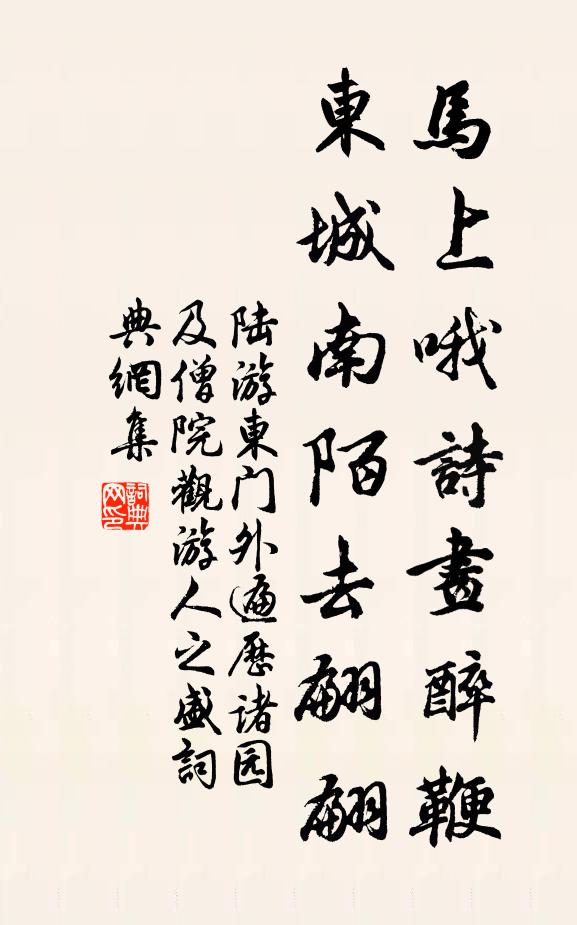 馬上哦詩畫醉鞭
東城南陌去翩翩
陆游東门外遍歷诸园
及僧院觀游人之盛詞
典網集
詞典
网印